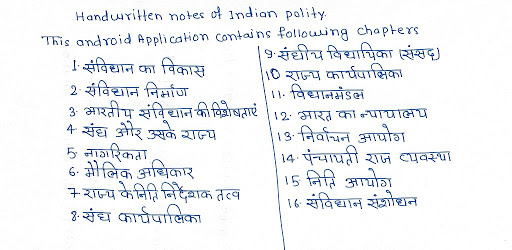 Handwritten notes of Indian polity.
This android Application contains following chapters
1. संविधान का विकास
2. संविधान निर्माण
3. भारतीय संविधान की विशेषताएं
4 संघ और उसके राज्य
5. नागरिकता
6. मौलिक अधिकार
7. राज्य के निति निर्देशक तत्व
8. संघ कार्यपालिका
9. संघीय विधायिका (संसद)
10 राज्य कार्यपालिका
11. विधानमंडल
12. भारत का न्यायालय
13. निर्वाचन आयोग
14. पंचायती राज व्यवस्था
15 निति आयोग
16. संविधान संशोधन